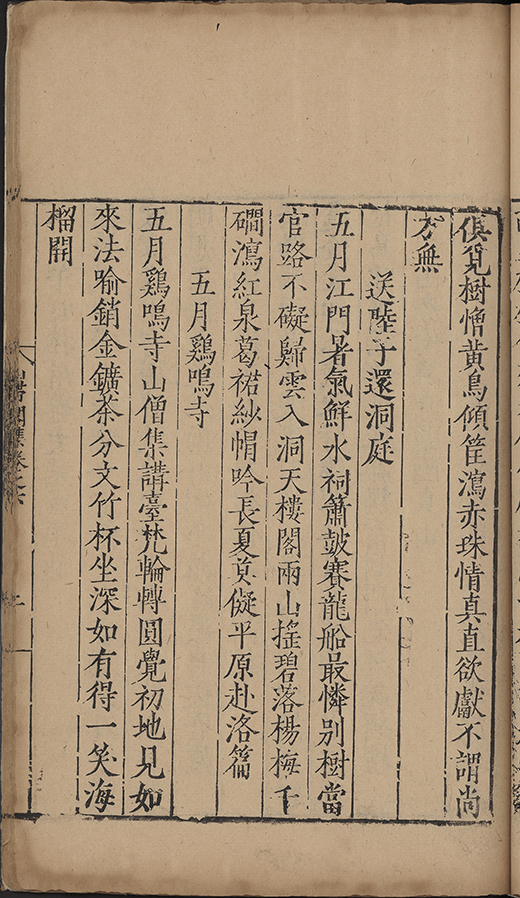 俱覓樹憎黃鳥傾筐瀉赤珠情真直欲獻不謂尚
方無
送陸子還洞庭
五月江門暑氣鮮水祠簫鼓賽龍船最憐別樹當
官路不礙歸雲入洞天樓閣兩山搖碧落楊梅千
磵瀉紅泉葛裙紗帽吟長夏莫儗平原赴洛篇
五月鷄鳴寺
五月鷄鳴寺山僧集講臺梵輪轉圓覺初地見如
來法喻銷金鑛茶分文竹杯坐深如有得一笑海
榴開
集卷之六